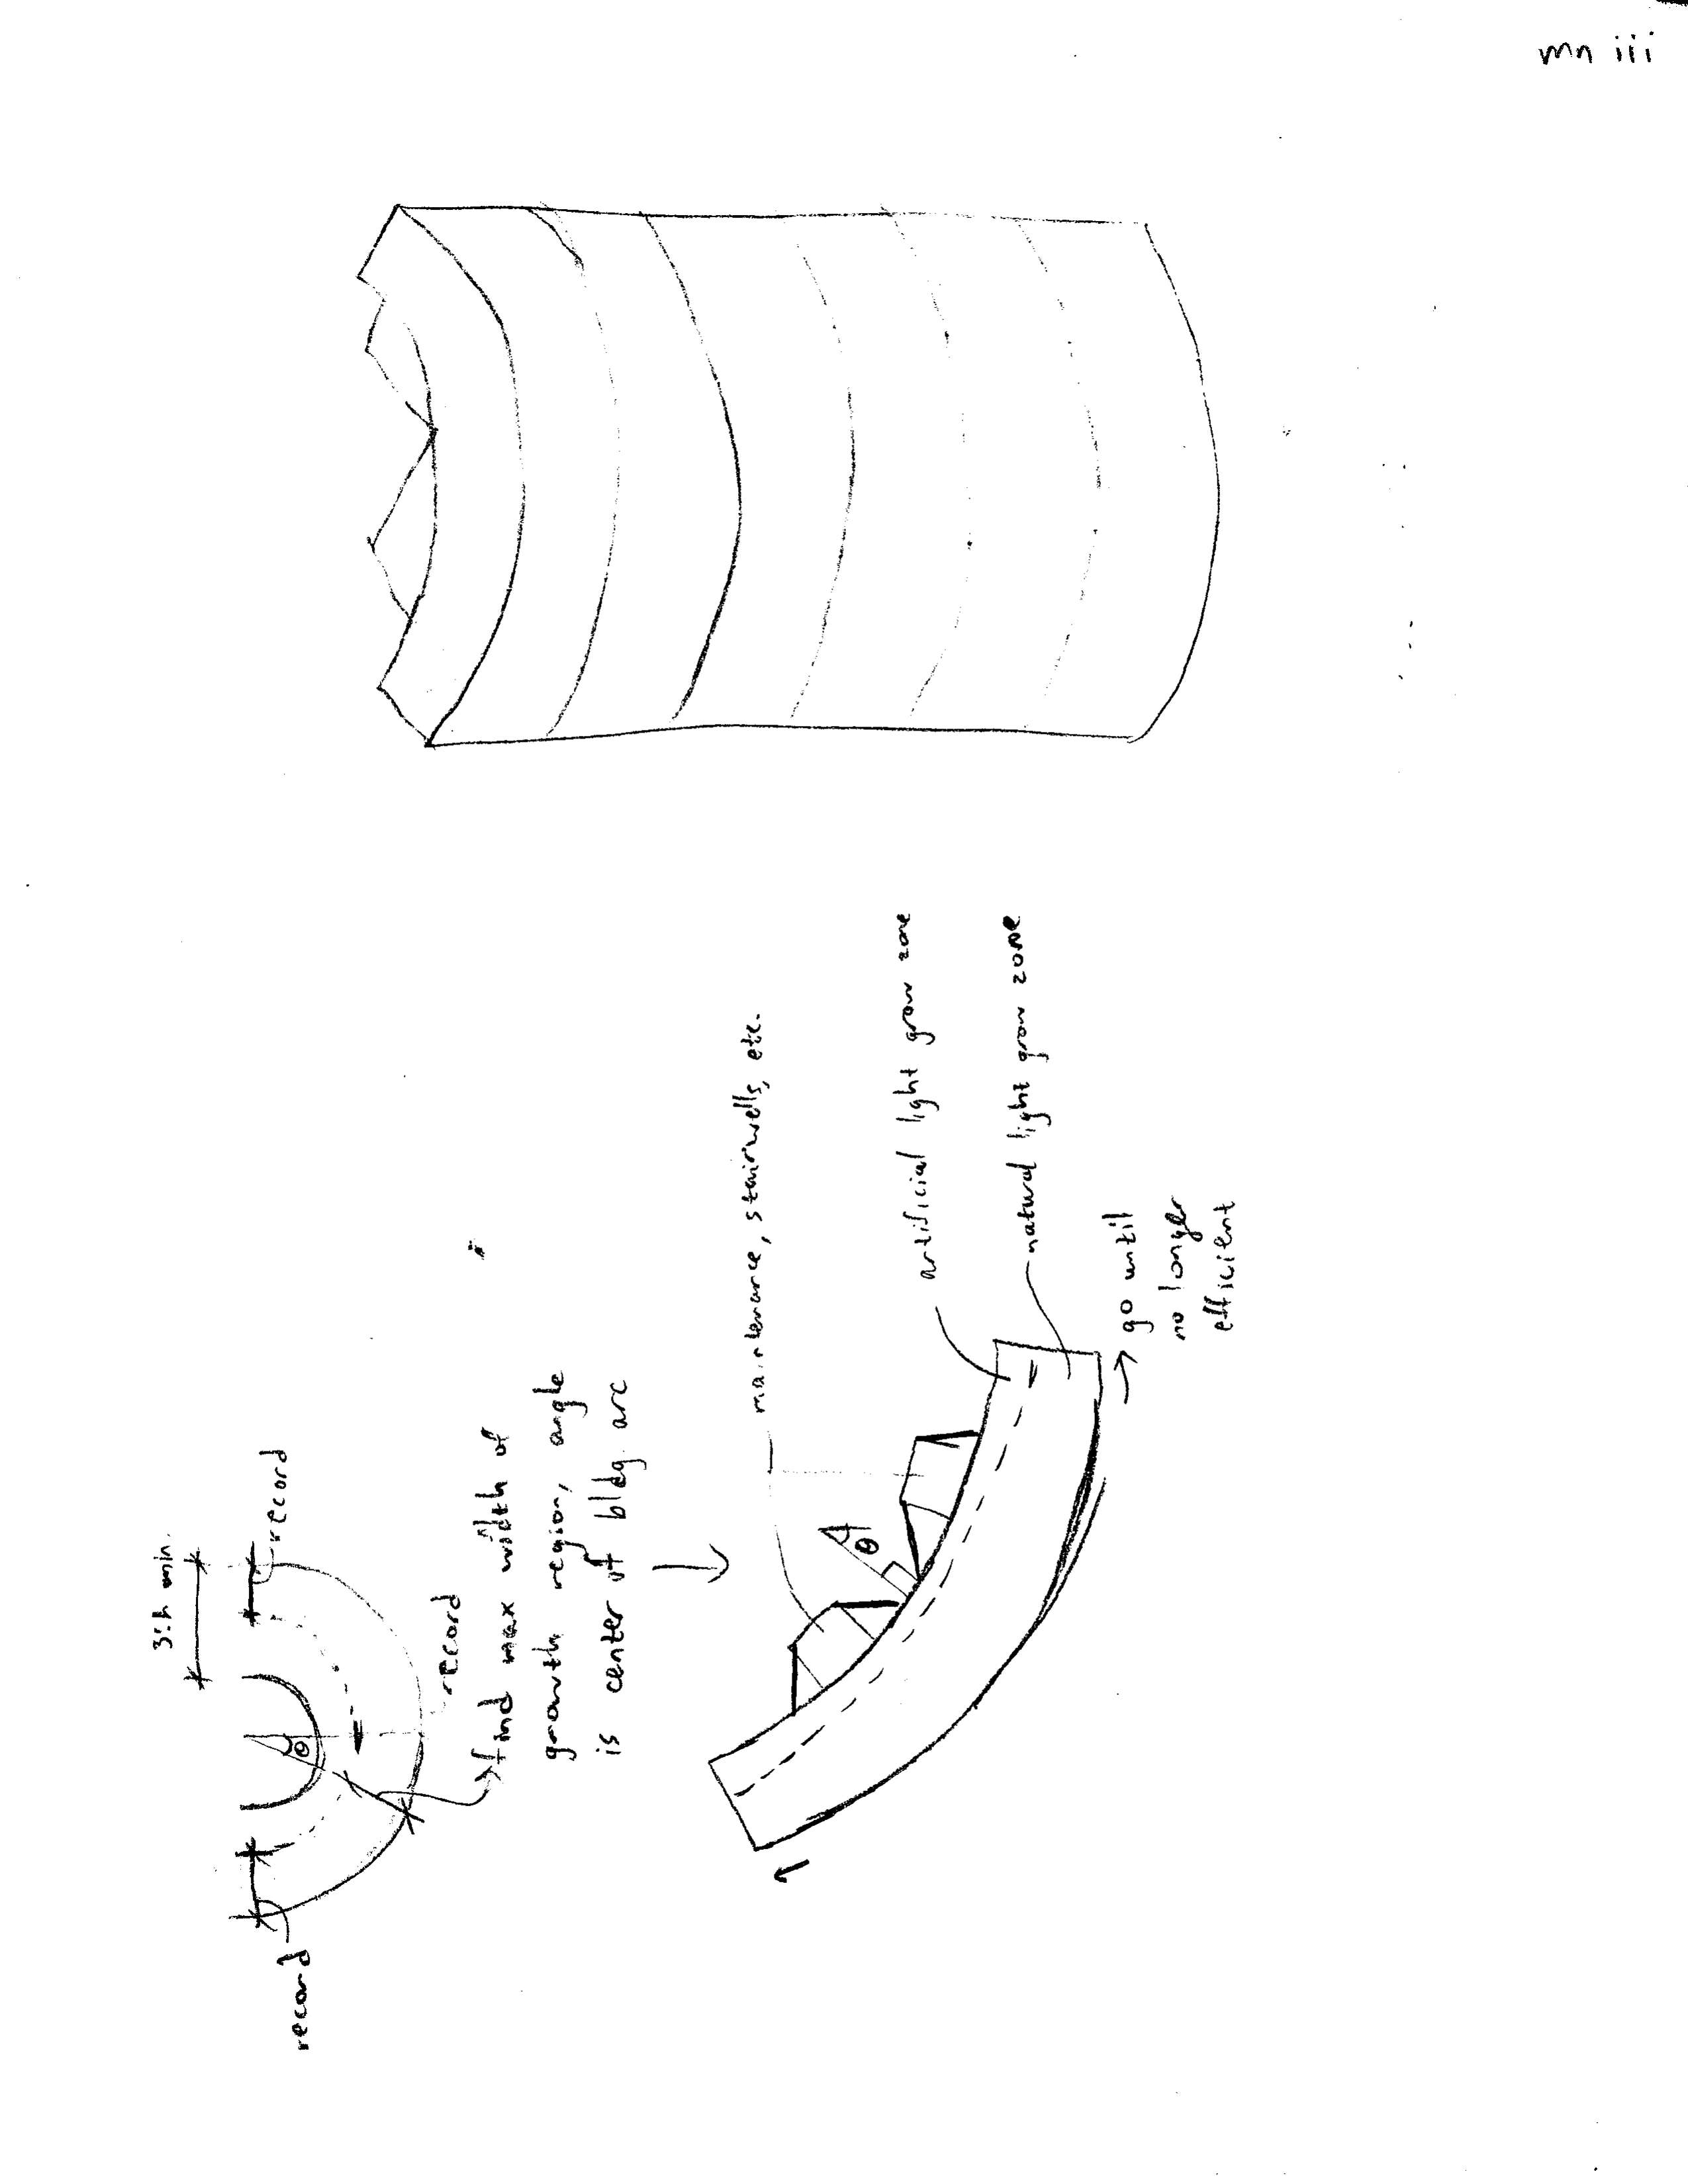 mn iii
3:h min.
record
record
record
θ
find max width of
growth region, angle
is center of bldg. arc
maintenance, stairwells, etc.
θ
artificial light grow zone
natural light grow zone
go until
no longer
efficient